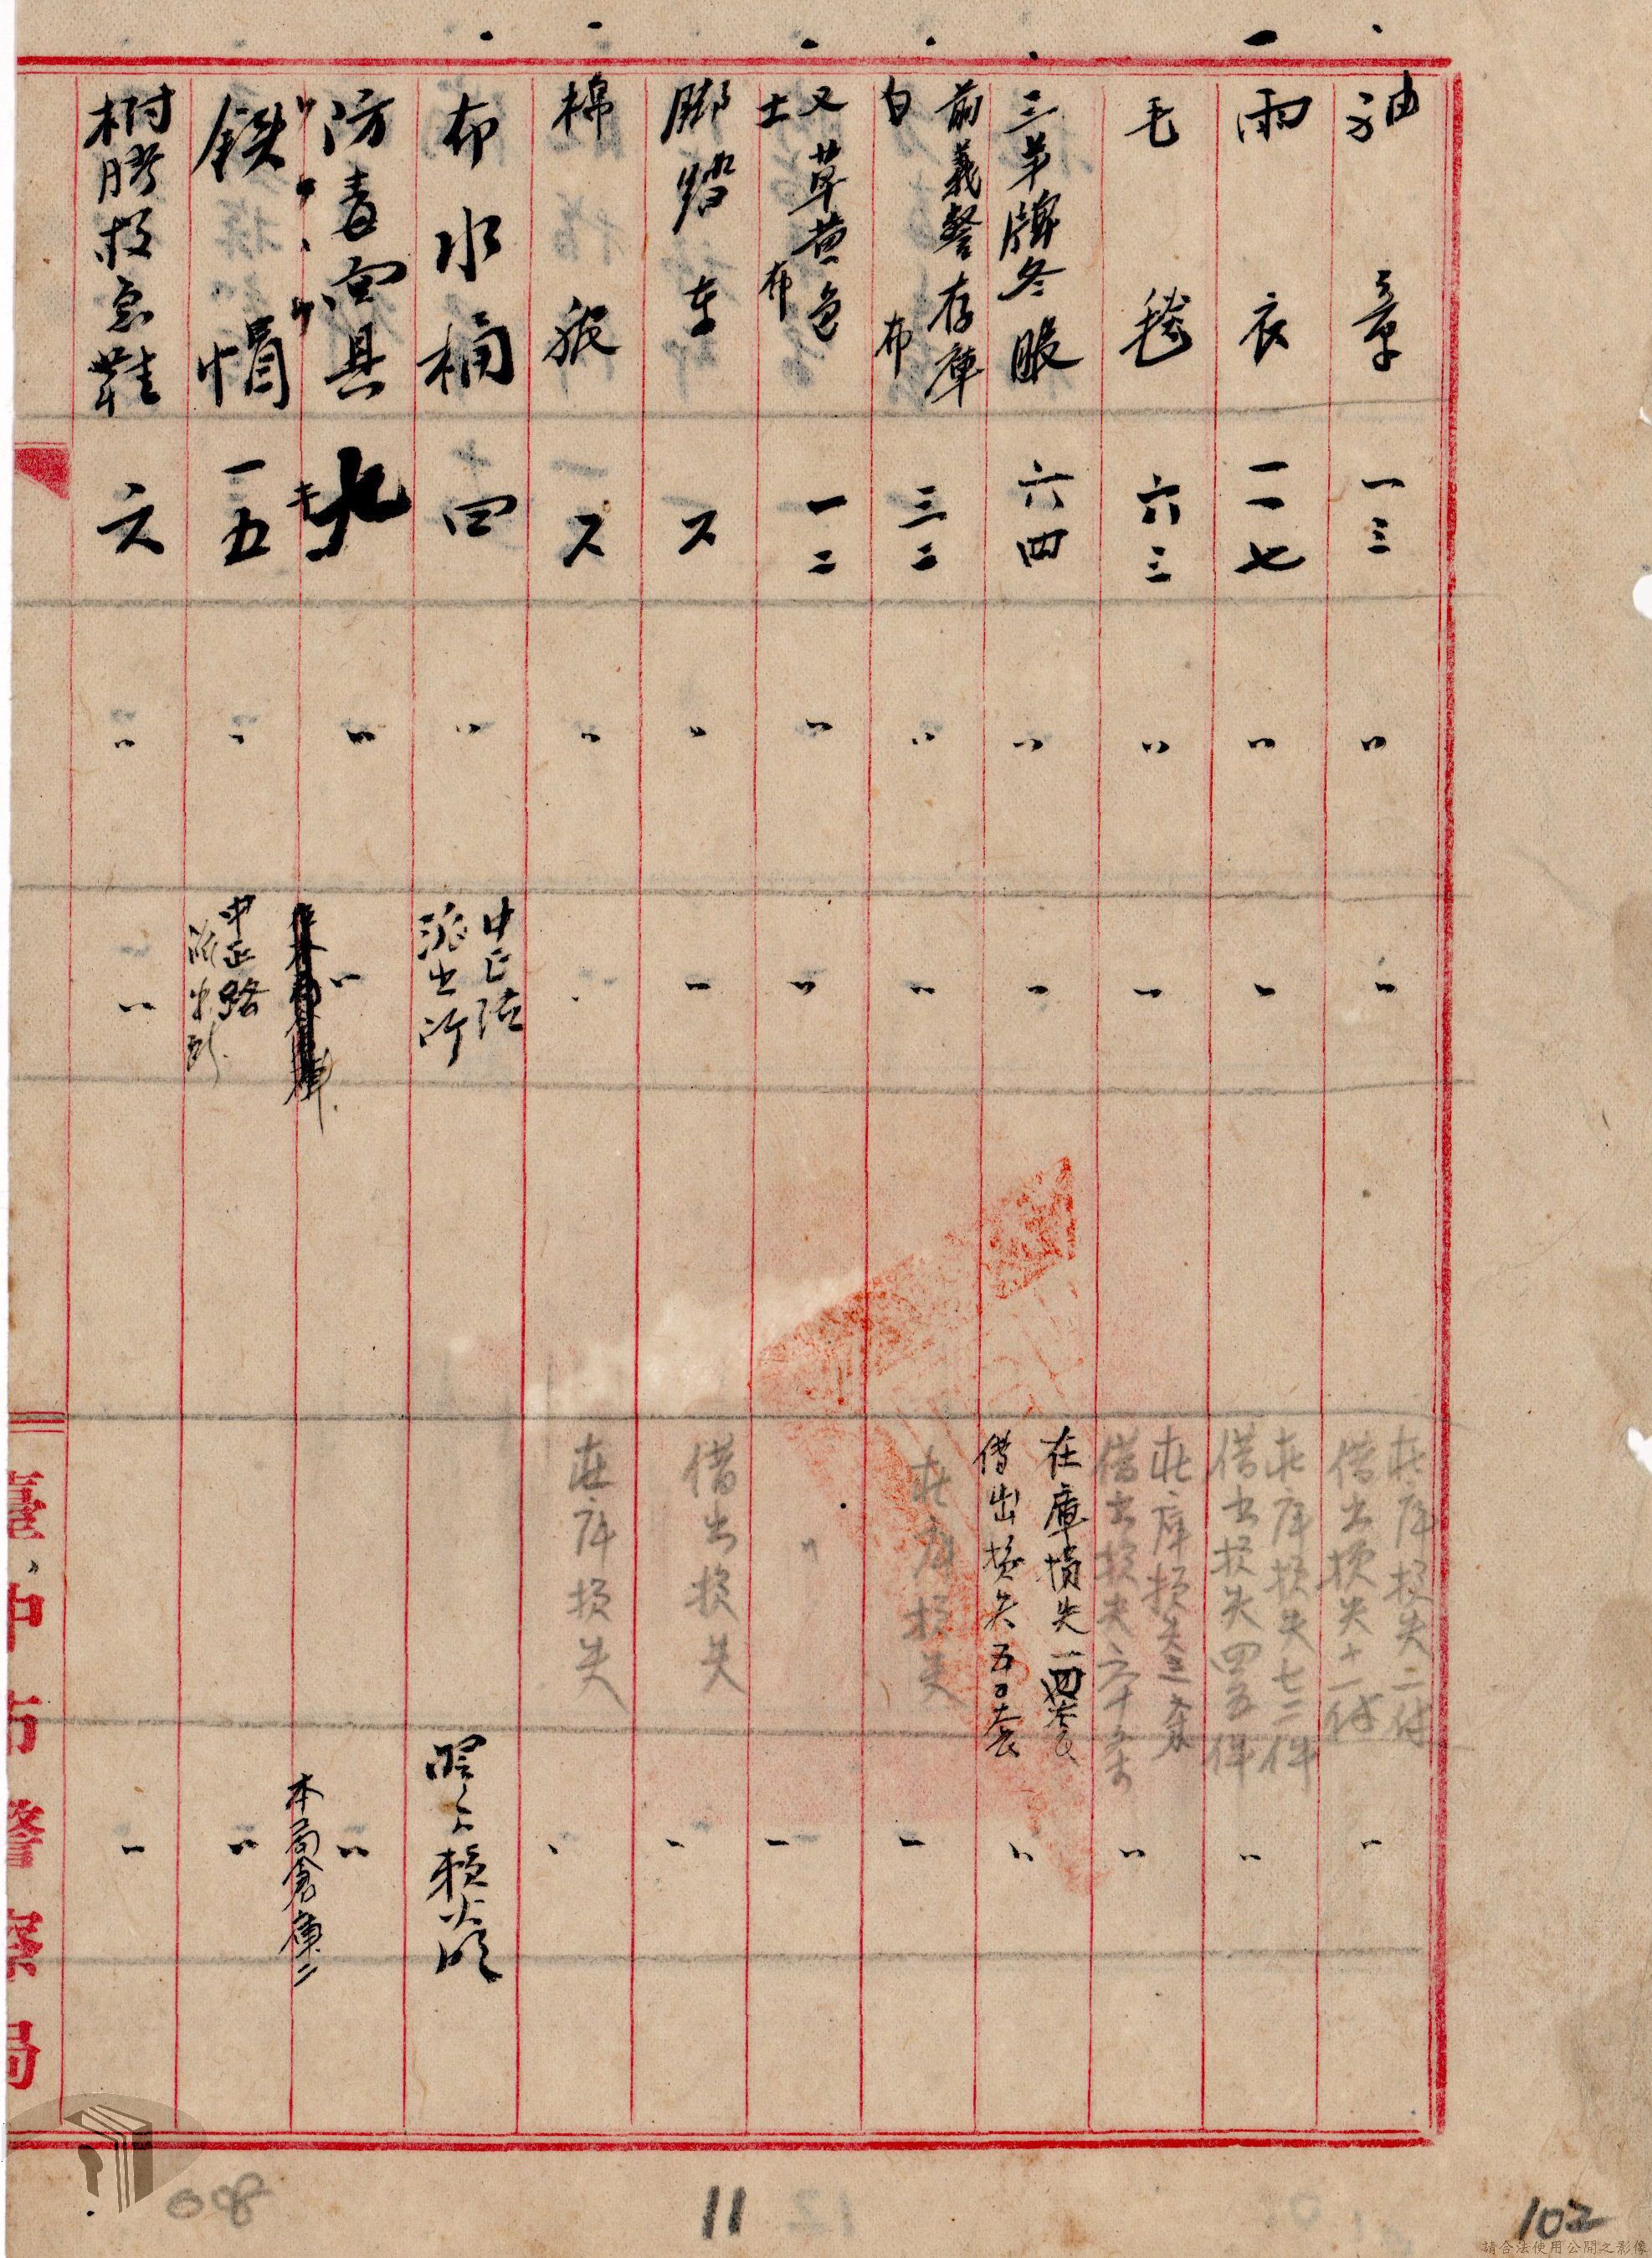 袖章 一三 〃 〃 在庫損失二件
借出損失十一件 〃
雨衣 一一七 〃 〃 在庫損失七二件
借出損失四五件 〃
毛毯 六三 〃 〃 在庫損失三条
借出損失六十条 〃
三羊牌冬服 六四 〃 〃 在庫損失一四套
借出損失五〇套 〃
前義警存庫
白布 三二 〃 〃 在庫損失 〃
又草黄色
土布 一二 〃 〃 〃 〃
脚踏車 〃 〃 借出損失 〃
棉 〃 〃 在庫損失 〃
布水桶 四 〃 中正路
派出所
防毒面具 〃 〃 〃
本局倉庫二
鉄帽 一五 〃 中正路
派出所 〃
樹膠救急鞋 六 〃 〃 〃
臺中市警察局
11
102
請合法使用公開之影像